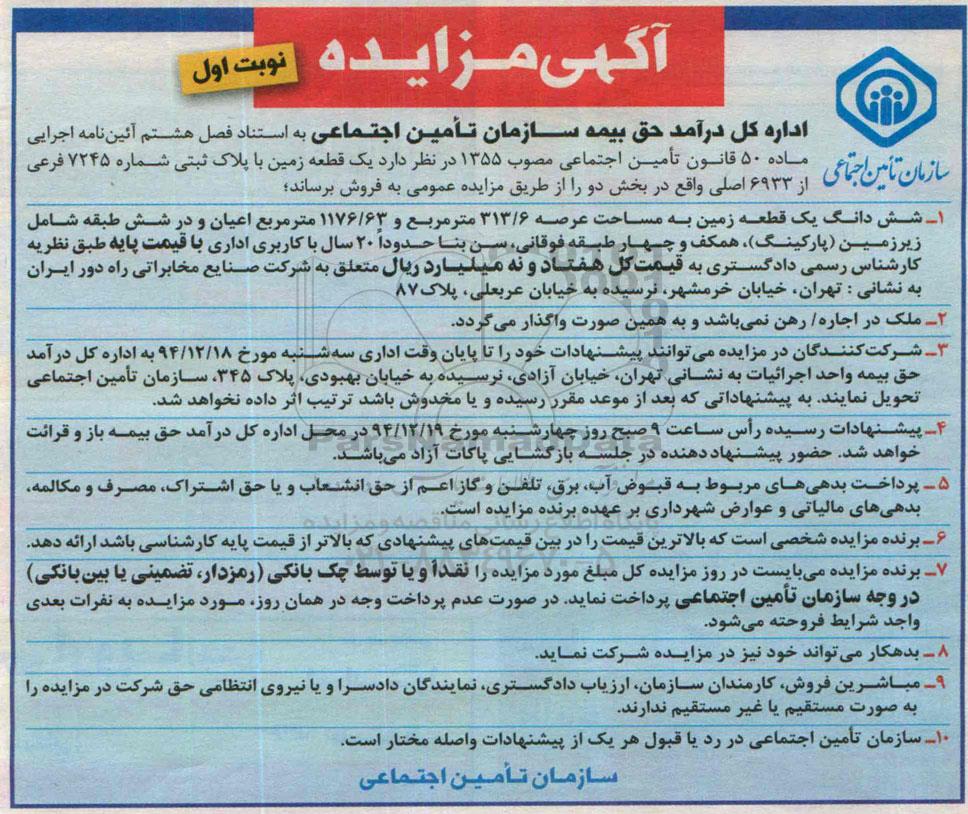 آگهی مزایده
نوبت اول
سازمان تأمین اجتماعی
اداره کل درآمد حق بیمه سازمان تأمین اجتماعی به استناد فصل هشتم آئین‌نامه اجرایی
ماده ۵۰ قانون تأمین اجتماعی مصوب ۱۳۵۵ در نظر دارد یک قطعه زمین با پلاک ثبتی شماره ۷۲۴۵ فرعی
از ۶۹۳۳ اصلی واقع در بخش دو را از طریق مزایده عمومی به فروش برساند؛
۱ـ شش دانگ یک قطعه زمین به مساحت عرصه ۳۱۳/۶ مترمربع و ۱۱۷۶/۶۳ مترمربع اعیان و در شش طبقه شامل
زیرزمین (پارکینگ)، همکف و چهار طبقه فوقانی، سن بنا حدوداً ۲۰ سال با کاربری اداری با قیمت پایه طبق نظریه
کارشناس رسمی دادگستری به قیمت کل هفتاد و نه میلیارد ریال متعلق به شرکت صنایع مخابراتی راه دور ایران
به نشانی : تهران، خیابان خرمشهر، نرسیده به خیابان عربعلی، پلاک ۸۷
۲ـ ملک در اجاره/ رهن نمی‌باشد و به همین صورت واگذار می‌گردد.
۳ـ شرکت‌کنندگان در مزایده می‌توانند پیشنهادات خود را تا پایان وقت اداری سه‌شنبه مورخ ۹۴/۱۲/۱۸ به اداره کل درآمد
حق بیمه واحد اجرائیات به نشانی تهران، خیابان آزادی، نرسیده به خیابان بهبودی، پلاک ۳۴۵، سازمان تأمین اجتماعی
تحویل نمایند. به پیشنهاداتی که بعد از موعد مقرر رسیده و یا مخدوش باشد ترتیب اثر داده نخواهد شد.
۴ـ پیشنهادات رسیده رأس ساعت ۹ صبح روز چهارشنبه مورخ ۹۴/۱۲/۱۹ در محل اداره کل درآمد حق بیمه باز و قرائت
خواهد شد. حضور پیشنهاد دهنده در جلسه بازگشایی پاکات آزاد می‌باشد.
۵ـ پرداخت بدهی‌های مربوط به قبوض آب، برق، تلفن و گاز اعم از حق انشعاب و یا حق اشتراک، مصرف و مکالمه،
بدهی‌های مالیاتی و عوارض شهرداری بر عهده برنده مزایده است.
۶ـ برنده مزایده شخصی است که بالاترین قیمت را در بین قیمت‌های پیشنهادی که بالاتر از قیمت پایه کارشناسی باشد ارائه دهد.
۷ـ برنده مزایده می‌بایست در روز مزایده کل مبلغ مورد مزایده را نقدا و یا توسط چک بانکی (رمزدار، تضمینی یا بین‌بانکی)
در وجه سازمان تأمین اجتماعی پرداخت نماید. در صورت عدم پرداخت وجه در همان روز، مورد مزایده به نفرات بعدی
واجد شرایط فروخته می‌شود.
۸ـ بدهکار می‌تواند خود نیز در مزایده شرکت نماید.
۹ـ مباشرین فروش، کارمندان سازمان، ارزیاب دادگستری، نمایندگان دادسرا و یا نیروی انتظامی حق شرکت در مزایده را
به صورت مستقیم یا غیر مستقیم ندارند.
۱۰ـ سازمان تأمین اجتماعی در رد یا قبول هر یک از پیشنهادات واصله مختار است.
سازمان تأمین اجتماعی
ParsNamadData
پایگاه اطلاع رسانی مناقصه و مزایده